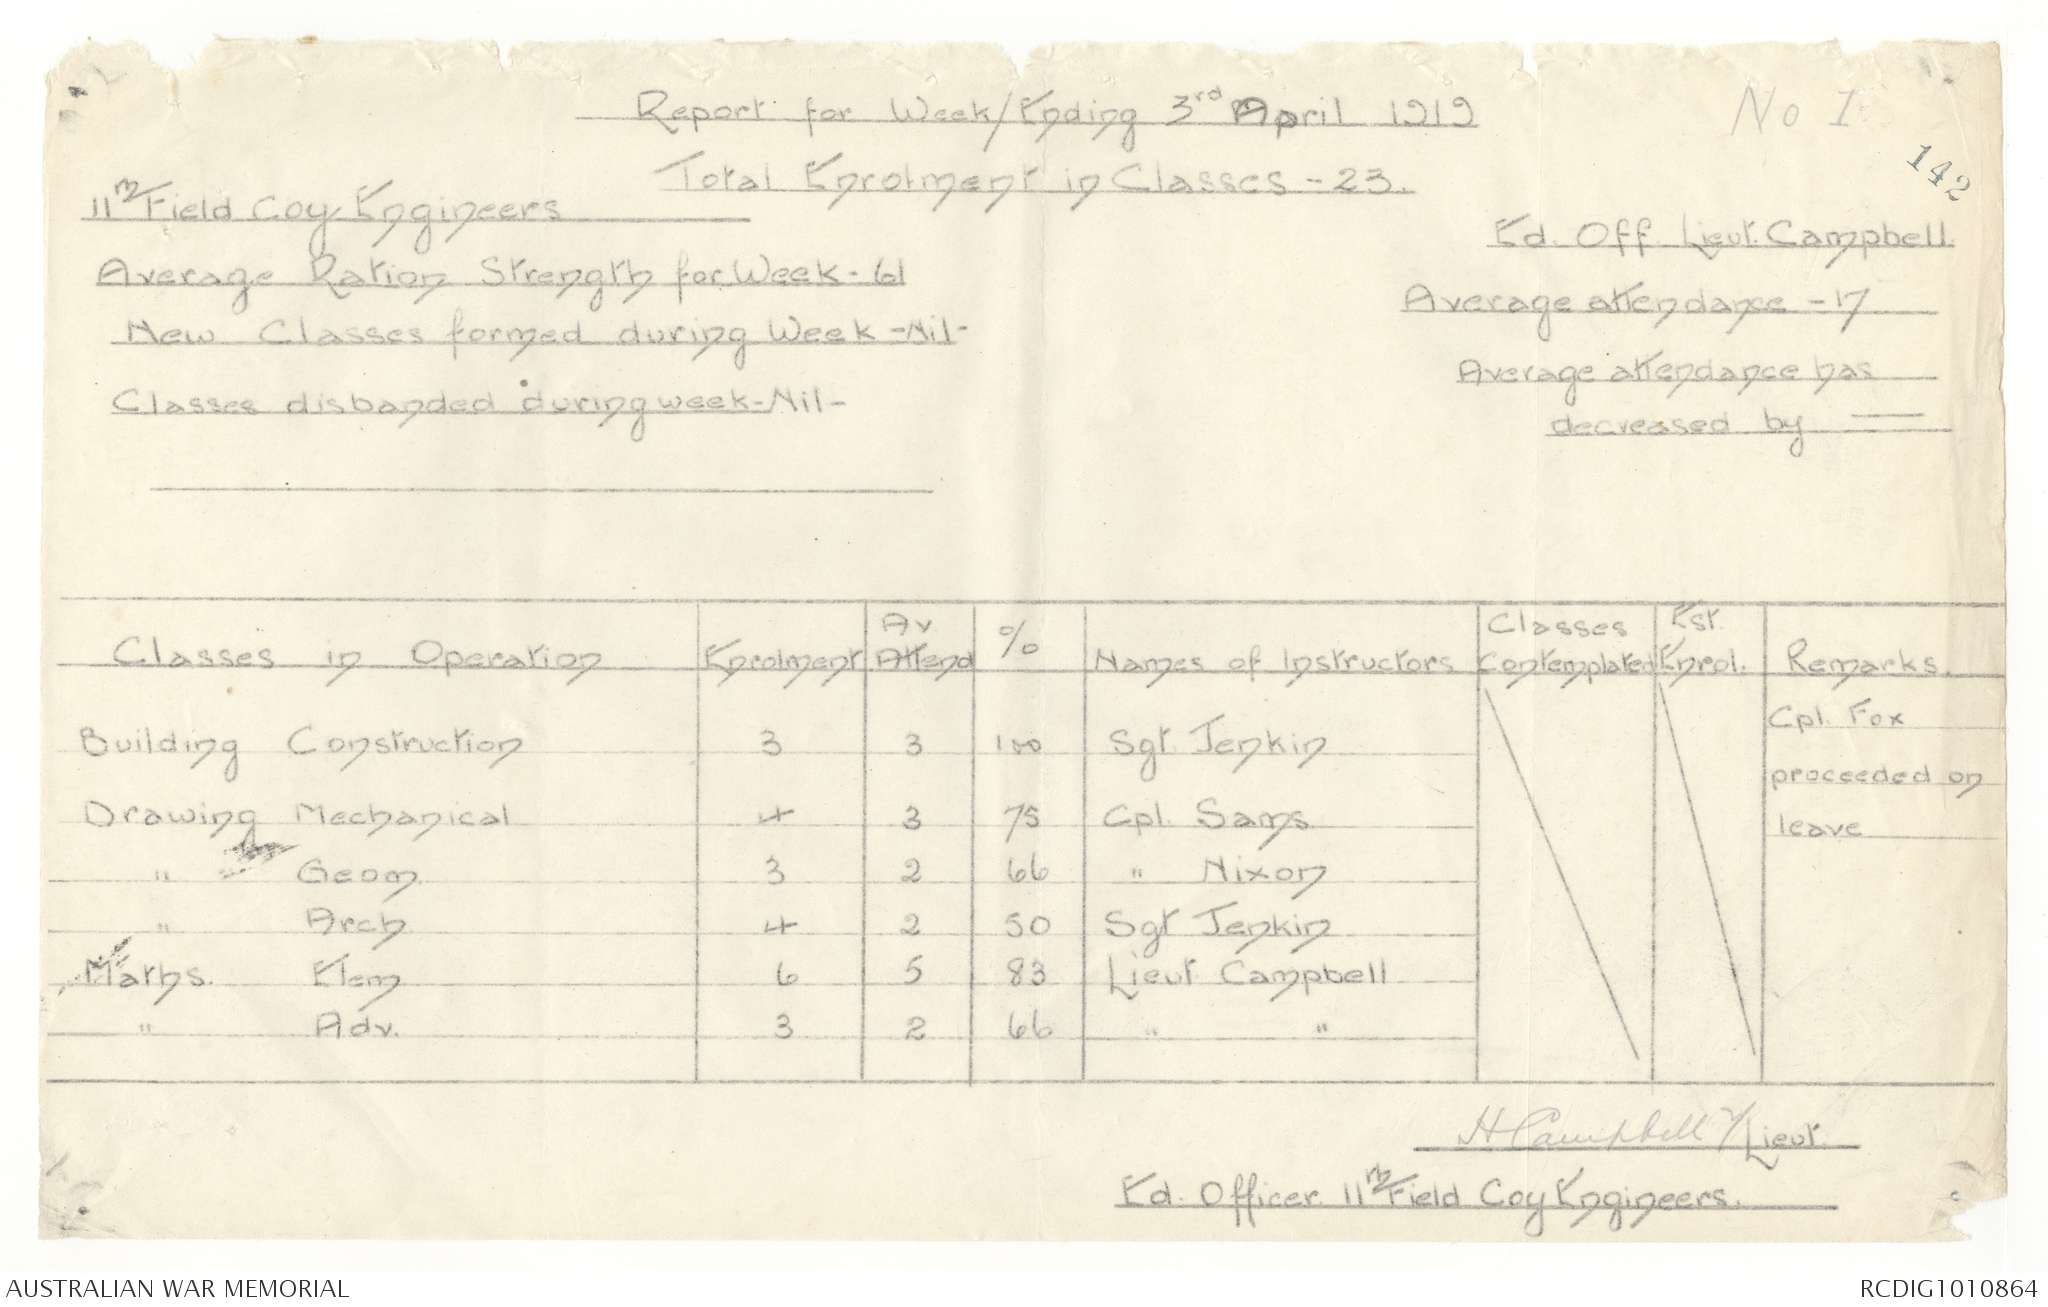 Report for Week/Ending 3rd April 1919
No 1.
142
Total Enrolment in Classes - 23.
11th Field Coy Engineers
Ed. Off Lieut. Campbell.
Average Ration Strength for Week - 61
Average attendance - 17
New Classes formed during Week - Nil -
Average attendance has
decreased by —
Classes disbanded during week - Nil -
Classes in Operation | Enrolment | Av Attend | % | Names of Instructors | Classes Contemplated | Est. Enrol. | Remarks.
Building Construction 3 3 100 Sgt Jenkin
Drawing Mechanical 4 3 75 Cpl. Sams
" Geom. 3 2 66 " Nixon
" Arch 4 2 50 Sgt Jenkin
Maths. Elem 6 5 83 Lieut Campbell
" Adv. 3 2 66 " "
Cpl. Fox
proceeded on
leave
H Campbell Lieut.
Ed. Officer 11th Field Coy Engineers.
AUSTRALIAN WAR MEMORIAL
RCDIG1010864